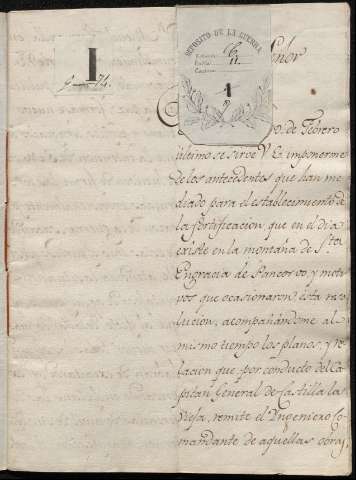 I
9 - 74
DEPOSITO DE LA GUERRA
1
Señor
de Febrero
ultimo se sirve V. E. imponerme
de los antecedentes que han me
diado para el establecimiento de
la fortificacion que en el dia
existe en la montaña de Sta.
Engracia de Pancorvo, y moti
vos que ocasionaron esta reso
lucion, acompañandome al
mismo tiempo los planos, y re
lacion que por conducto del Ca
pitan General de Castilla la
Vieja, remite el Ingeniero Co
mandante de aquellas obras,